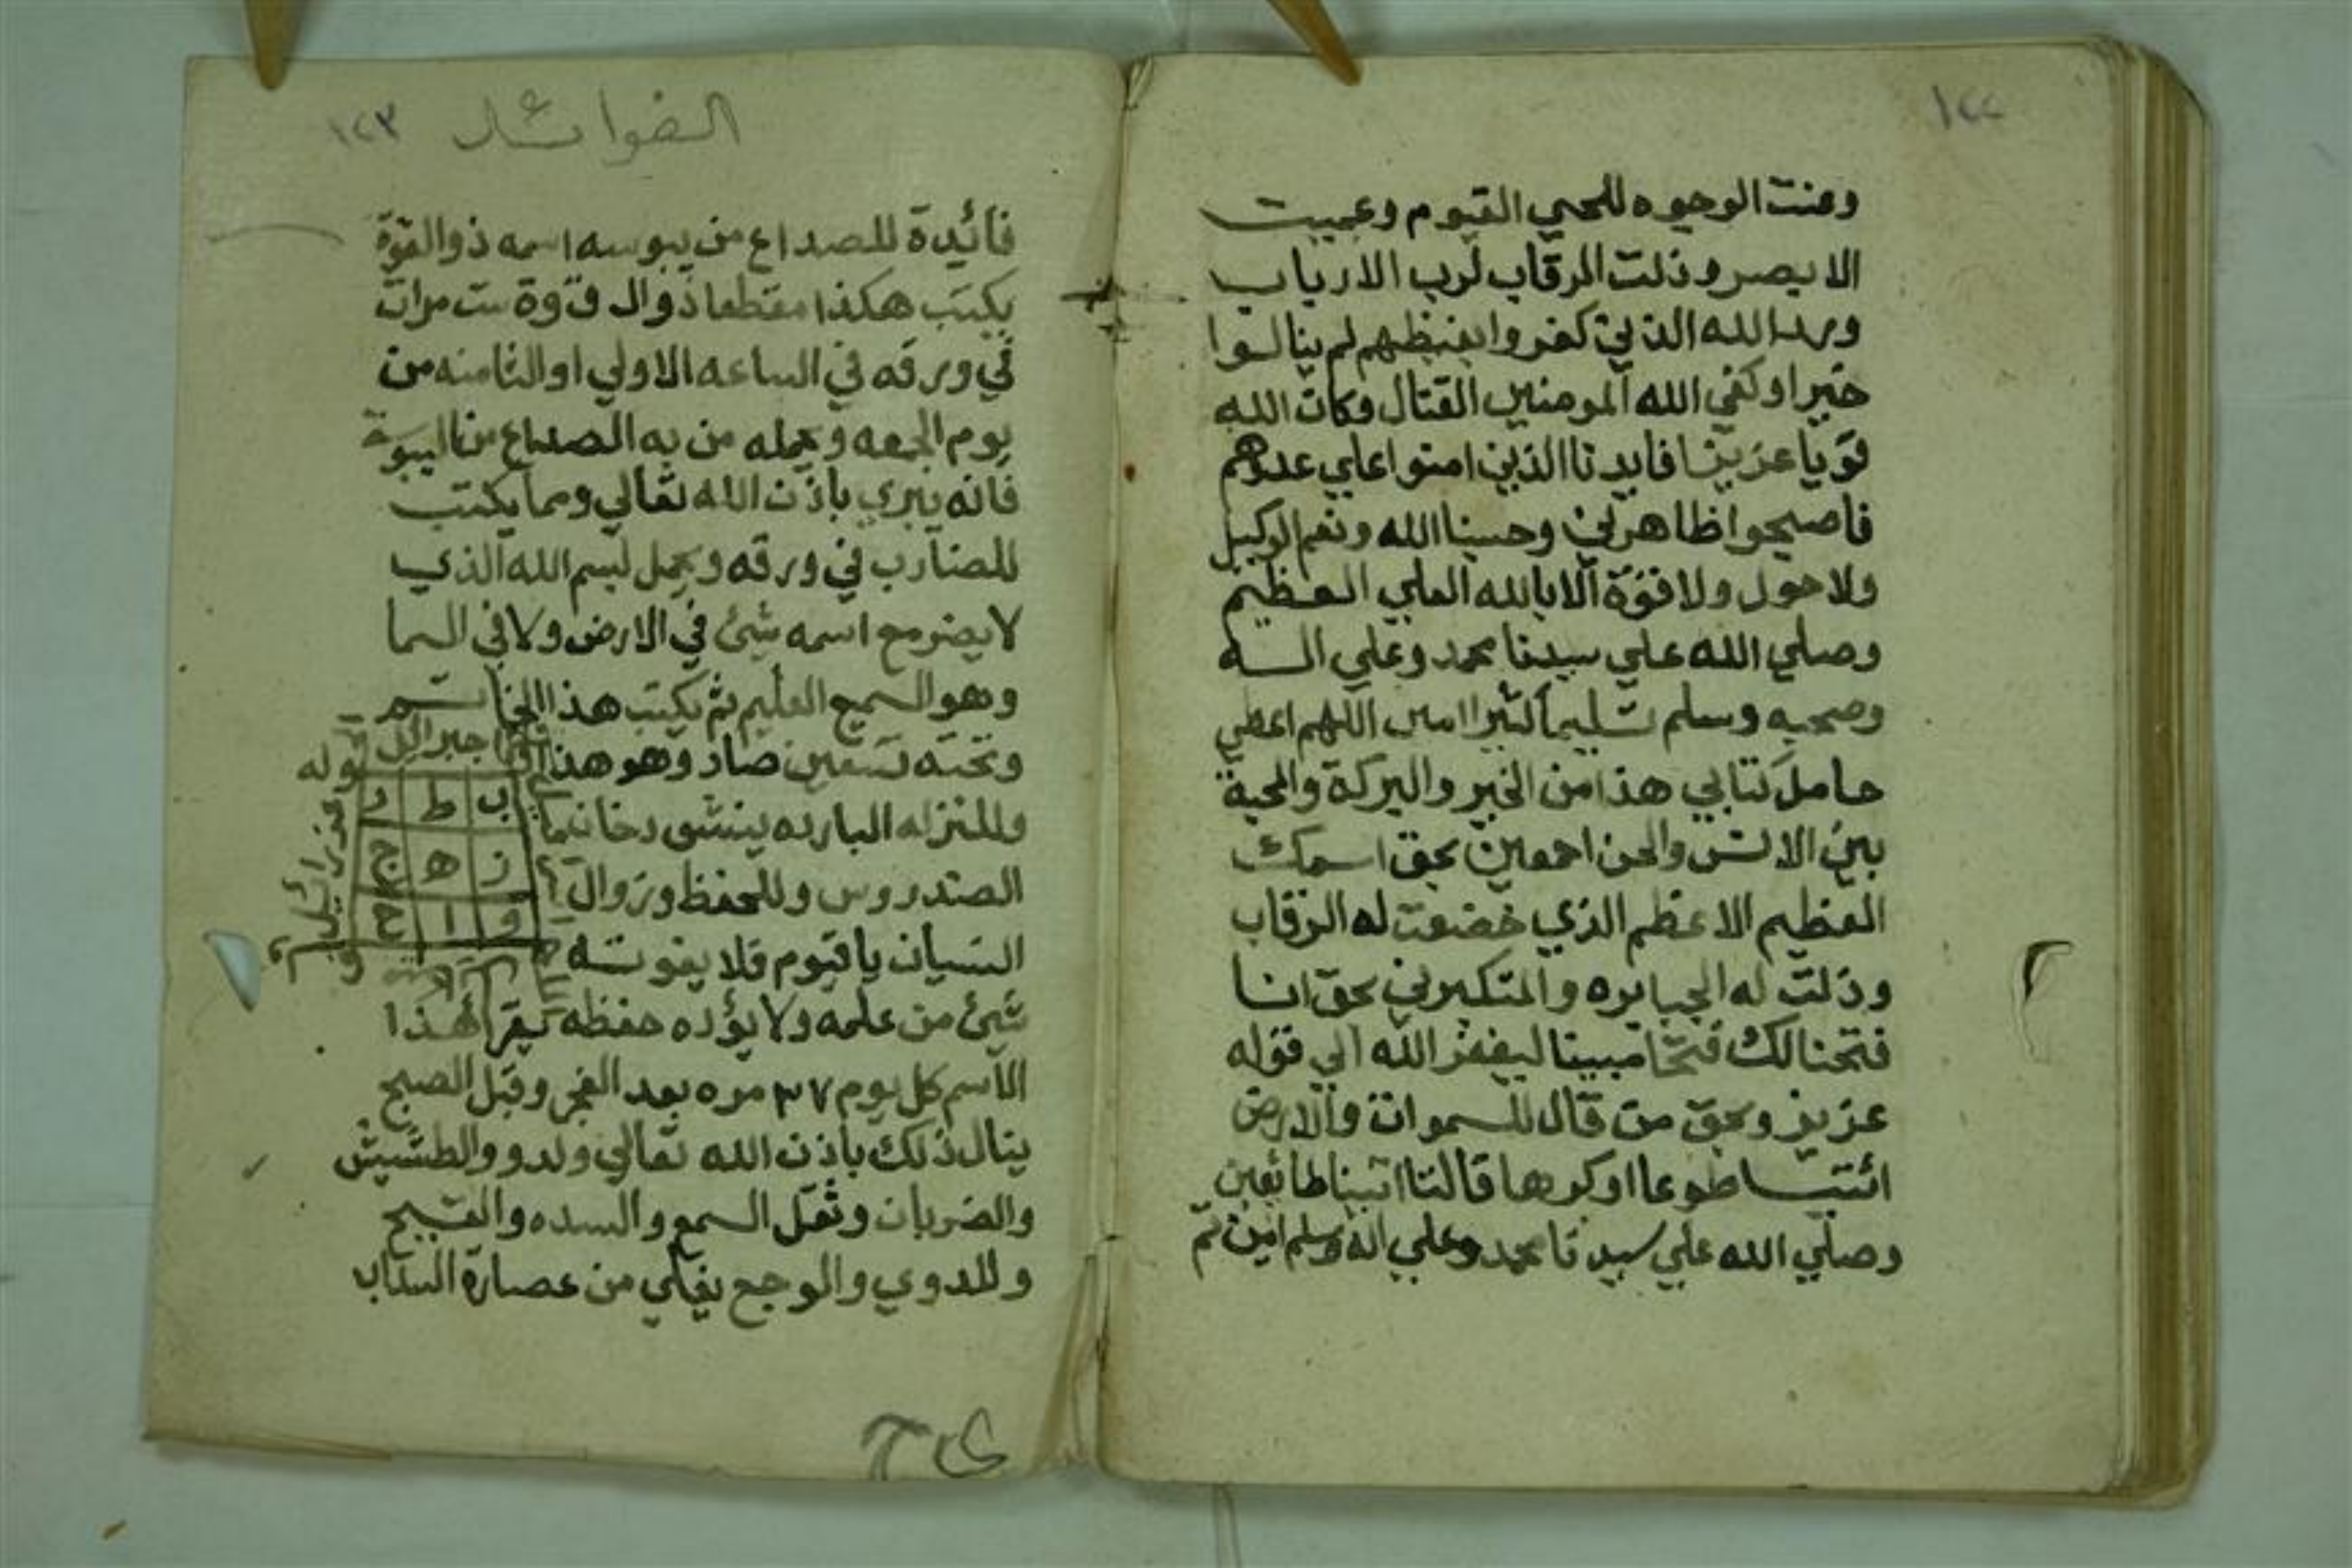 ١٢٢
وعنت الوجوه للحي القيوم وعميت
الابصر وذلت الرقاب لرب الارباب
ورد الله الذين كفروا بغيظهم لم ينالوا
خيرا وكفي الله المومنين القتال وكان الله
قويا عزيزا فايدنا الذين امنوا علي عدوهم
فاصبحوا ظاهرين وحسبنا الله ونعم الوكيل
ولا حول ولا قوة الا بالله العلي العظيم
وصلي الله علي سيدنا محمد وعلي اله
وصحبه وسلم تسليما كثيرا امين اللهم اعطي
حامل كتابي هذا من الخير والبركة والمحبة
بين الانس والجن اجمعين بحق اسمك
العظيم الاعظم الذي خضعت له الرقاب
وذلت له الجبابره والمتكبرين بحق انا
فتحنا لك فتحا مبينا ليغفر الله الي قوله
عزيز وبحق من قال للسموات والارض
ائتيا طوعا او كرها قالتا اتينا طائعين
وصلي الله علي سيدنا محمد وعلي اله وسلم امين تم
الفوائد ١٢٣
فائدة للصداع من يبوسه اسمه ذوالقوة
يكتب هكذا مقطعا ذ و ا ل ق و ة ست مرات
في ورقه في الساعه الاولي او الثامنه من
يوم الجمعه ويحمله من به الصداع من
فانه يبري باذن الله تعالي ومما يكتب
للضارب في ورقه ويحمل بسم الله الذي
لا يضر مع اسمه شئ في الارض ولا في السما
وهو السميع العليم ثم يكتب هذا الخاتم
وتحته تسعين صاد وهو هذا
جبرائيل
قوله
ب ط د
ز ه ج
و ا ح
عزرائيل
وللنزله البارده ينشق دخان
الصندروس وللحفظ وزوال
النسيان يا قيوم فلا يفوته
شئ من علمه ولا يؤده حفظه يقرا هذا
الاسم كل يوم ٣٧ مره بعد الفجر وقبل الصبح
ينال ذلك باذن الله تعالي والطشيش
والضربان وثقل السمع والسده والقيح
وللدوي والوجع يغلي من عصارة السداب